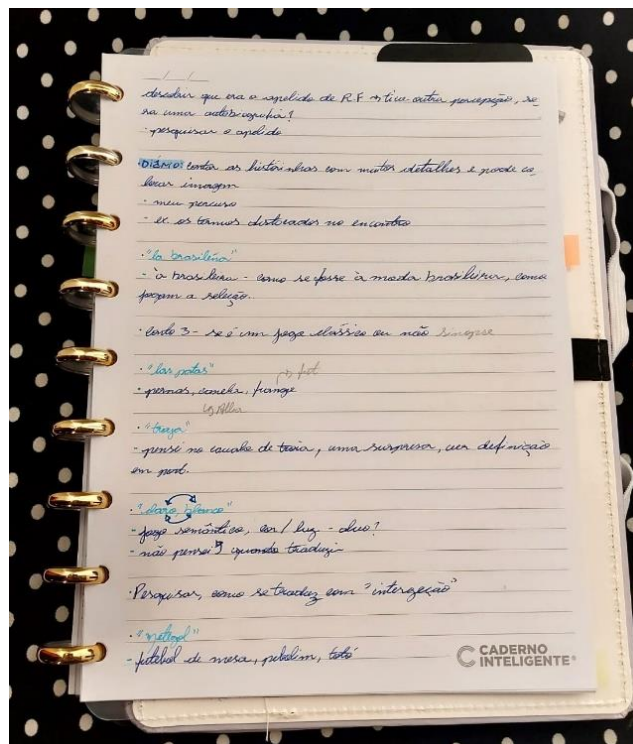 __/__/__
descobrir que era o apelido de R.F → tive outra percepção, se_
ra uma autobiografia?
- pesquisar o apelido
DIÁRIO: contar as historinhas com muitos detalhes e pode co_
locar imagem
- meu percurso
- ex. os termos destacados no encontro
· "la brasileña"
- "à brasileira - como se fosse à moda brasileira, como
jogam a seleção.
- se é um jogo clássico ou não sinopse
· "las patas"
- pernas, canela,
· "troya"
- pensei no cavalo de troia, uma surpresa, ver definição
em port.
· "claro, blanco"
- jogo semântico, cor / luz - duo?
- não pensei quando traduzi
· Pesquisar, como se traduz com "interjeição"
· "metegol"
- futebol de mesa, pebolim, totó
CADERNO
INTELIGENTE®